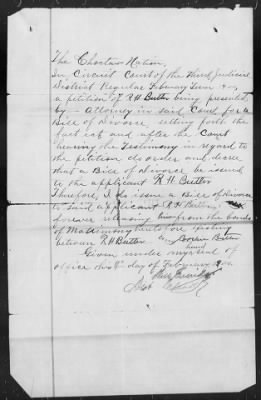 The Choctaw Nation.
In Circuit Court of the Third Judicial
District Regular February Term
a petition of R H Butler being presented
by - Attorney in said Court for a
Bill of Divorce setting forth the
fact &c and after the Court
hearing the Testimony in regard to
the petition do order and decree
that a Bill of Divorce be issued
to the applicant R. H. Butler
Therefore, I do issue a Bill of Divorce
to said applicant R H Butler,
forever releasing him from the bonds
of Matrimony heretofore existing
between R H Butler and Butler
Given under my hand
and seal of
office this day of February